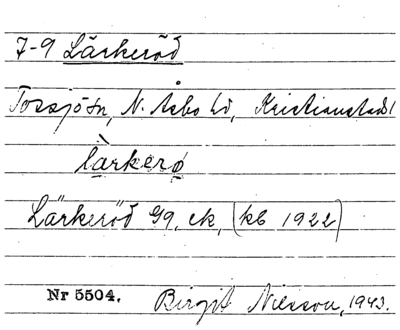 7-9 Lärkeröd
Tossjö sn, N. Åsbo hd, Kristianstads l
làrkerø
Lärkeröd Gg, ek, (kb 1922)
Nr 5504. Birgit Nilsson, 1943.